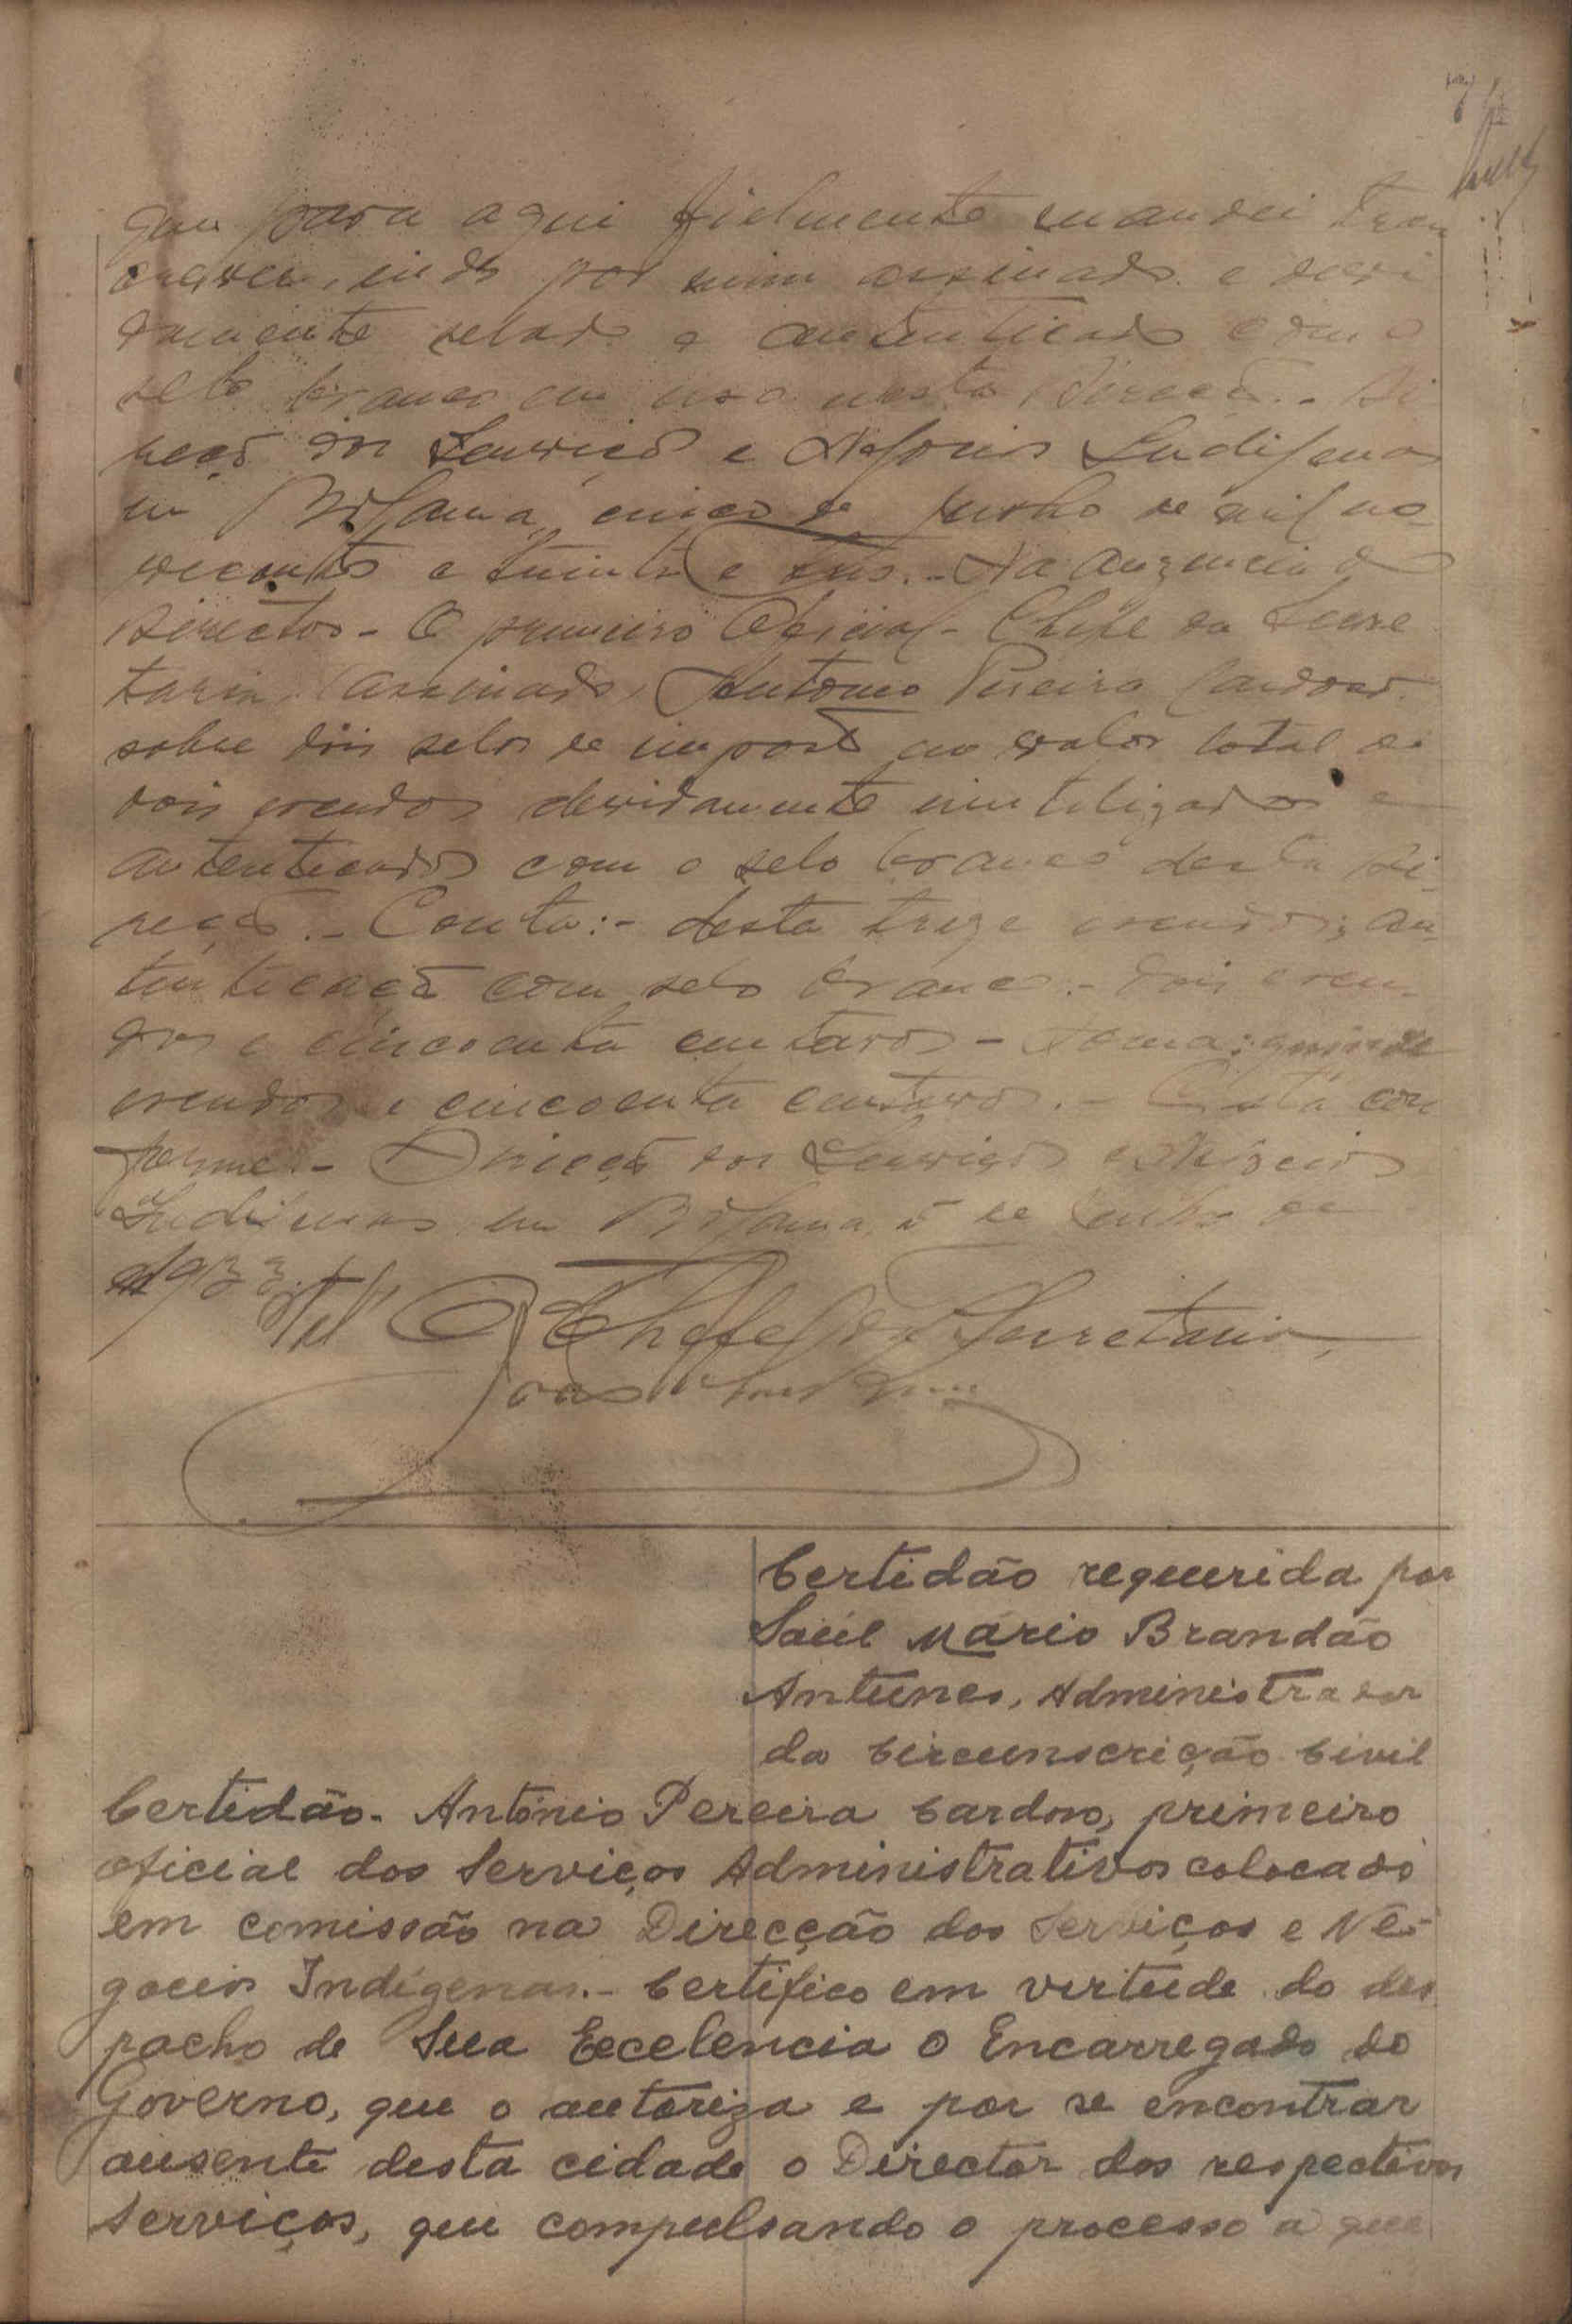 que para aqui fielmente mandei trans
crever, indo por mim assinado e devi
damente selado e autenticado com o
selo branco em uso nesta Direcção.- Di
recção dos Serviços e Negocios Indigenas
em Bolama, cinco de Junho de mil no
vecentos e trinta e tres.- Na auzencia do
Director- O primeiro Oficial- Chefe da Secre
taria, (assinado) Antonio Pereira Cardoso.
sobre dois selos de imposto no valor total de
dois escudos devidamente inutilizados e
autenticados com o selo branco desta Di-
recção.- Conta:- desta treze escudos; au-
tenticação com selo branco.- dois escu-
dos e cincoenta centavos- Soma: quinze
escudos e cincoenta centavos.- Está con
forme.- Direcção dos Serviços e Negocios
Indigenas em Bolama, 5 de Junho de
1933.
O Chefe da Secretaria,
Certidão requerida por
Saúl Mário Brandão
Antunes, Administrador
da Circunscrição Civil
Certidão- António Pereira Cardoso, primeiro
oficial dos Serviços Administrativos colocado
em comissão na Direcção dos Serviços e Ne-
gocios Indígenas.- Certifico em virtude do des
pacho de Sua Excelencia o Encarregado do
Governo, que o autoriza e por se encontrar
ausente desta cidade o Director dos respectivos
Serviços, que compulsando o processo a que